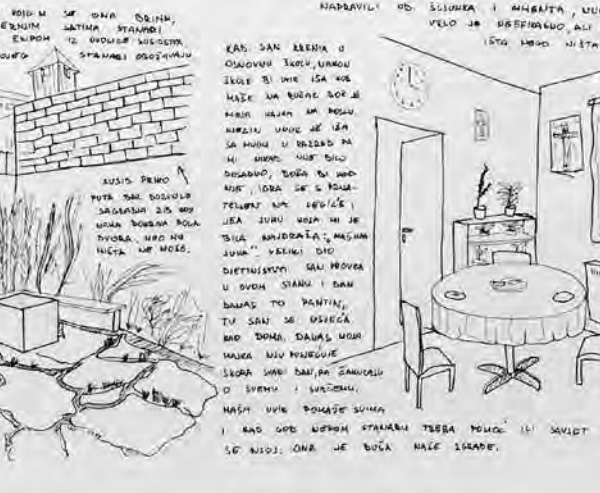 SE ONA BRINA,
SATIMA STANARI
EKIPOM IZ
STANARI OBOŽAVAJU
NAPRAVILI OD ŠLJUNKA I
ALI
ISTA NEGO NIŠTA
SUSID PRIKO
PUTA DAV DOZVOLU
SAGRADIA ZID KOJI
POLA
DVORA, NAO NU
NIŠTA NE MOŽE.
KAD SAN KRENIA U
OSNOVNU ŠKOLU, NAKON
ŠKOLE BI UVIK IŠA KOD
MAŠE NA RUČAK DOK JE
MOJA MAJKA NA POSLU.
NJEZIN UNUK JE IŠA
SA MNOM U RAZRED PA
MI NIKAD NIJE BILO
DOSADNO, DOŠA BI KOD
NJE, IGRA SE S PRIJA-
TELJEM NA LEGIĆE I
JEA JUHU KOJA MI JE
BILA NAJDRAŽA; "MAŠINA
JUHA". VELIKI DIO
DJETINJSTVA SAN PROVEA
U OVOM STANU I DAN
DANAS TO PANTIN,
TU SAN SE OSJEĆA
KAO DOMA. DANAS MOJA
MAJKA NJU POSJEĆUJE
SKORO SVAKI DAN, PA ĆAKULAJU
O SVEMU I SVAČEMU.
MAŠA UVIK POMAŽE SVIMA
I KAD GOD NEKOM STANARU TREBA POMOĆ ILI SAVJET
SE NJOJ. ONA JE DUŠA NAŠE ZGRADE.